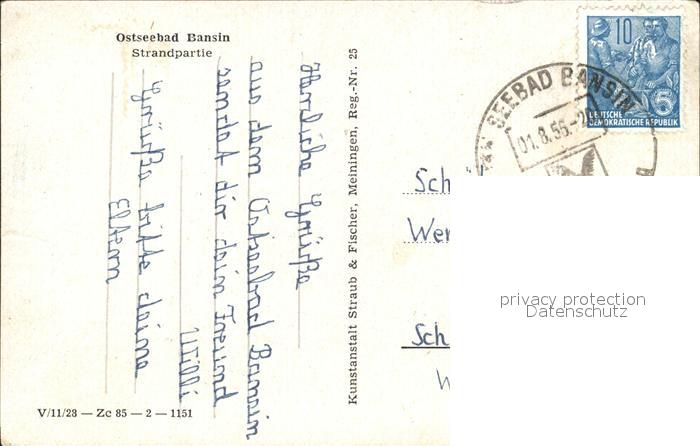 Ostseebad Bansin
Strandpartie
Herzliche Grüße
aus dem Ostseebad Bansin
sendet dir dein Freund
Willi
Grüße bitte deine
Eltern
V/11/28 — Zc 85 — 2 — 1151
Kunstanstalt Straub & Fischer, Meiningen, Reg.-Nr. 25
10
5
DEUTSCHE
DEMOKRATISCHE REPUBLIK
SEEBAD BANSIN
01.8.56.-2
Sch
Wer
Sch
W
privacy protection
Datenschutz